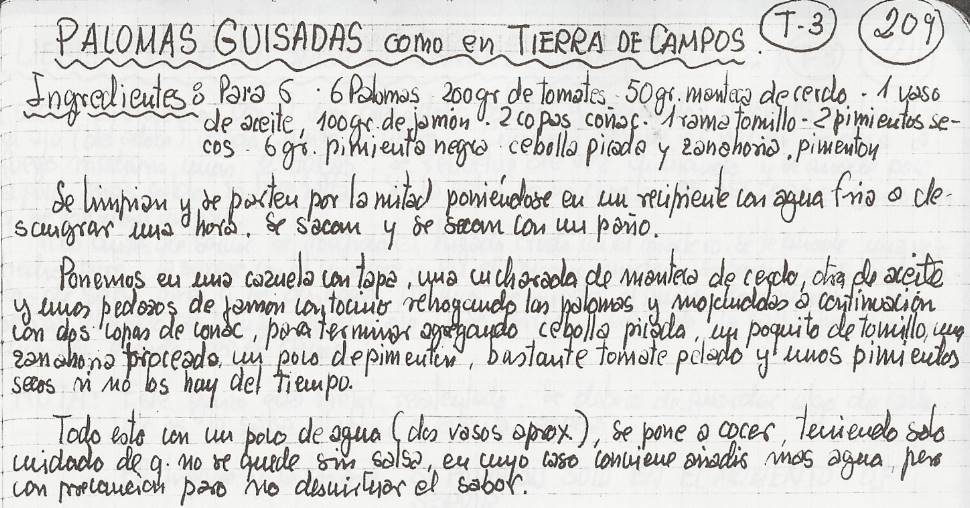 PALOMAS GUISADAS como en TIERRA DE CAMPOS. T-3 209
Ingredientes: Para 6 · 6 Palomas 200gr de tomates - 50gr. manteca de cerdo - 1 vaso
de aceite, 100gr. de jamón · 2 copas coñac · 1 rama tomillo - 2 pimientos se-
cos 6 gr. pimienta negra · cebolla picada y zanahoria, pimenton
Se limpian y se parten por la mitad poniendose en un recipiente con agua fria a de-
sangrar una hora. Se sacan y se secan con un paño.
Ponemos en una cazuela con tapa, una cucharada de manteca de cerdo, otra de aceite
y unos pedazos de jamon con tocino rehogando las palomas y mojandolas a continuación
con dos copas de conac, para terminar agregando cebolla picada, un poquito de tomillo, una
zanahoria troceada, un poco de pimentón, bastante tomate pelado y unos pimientos
secos si no los hay del tiempo.
Todo esto con un poco de agua (dos vasos aprox), se pone a cocer, teniendo solo
cuidado de q. no se quede sin salsa, en cuyo caso conviene añadir mas agua, pero
con precaucion para no desvirtuar el sabor.